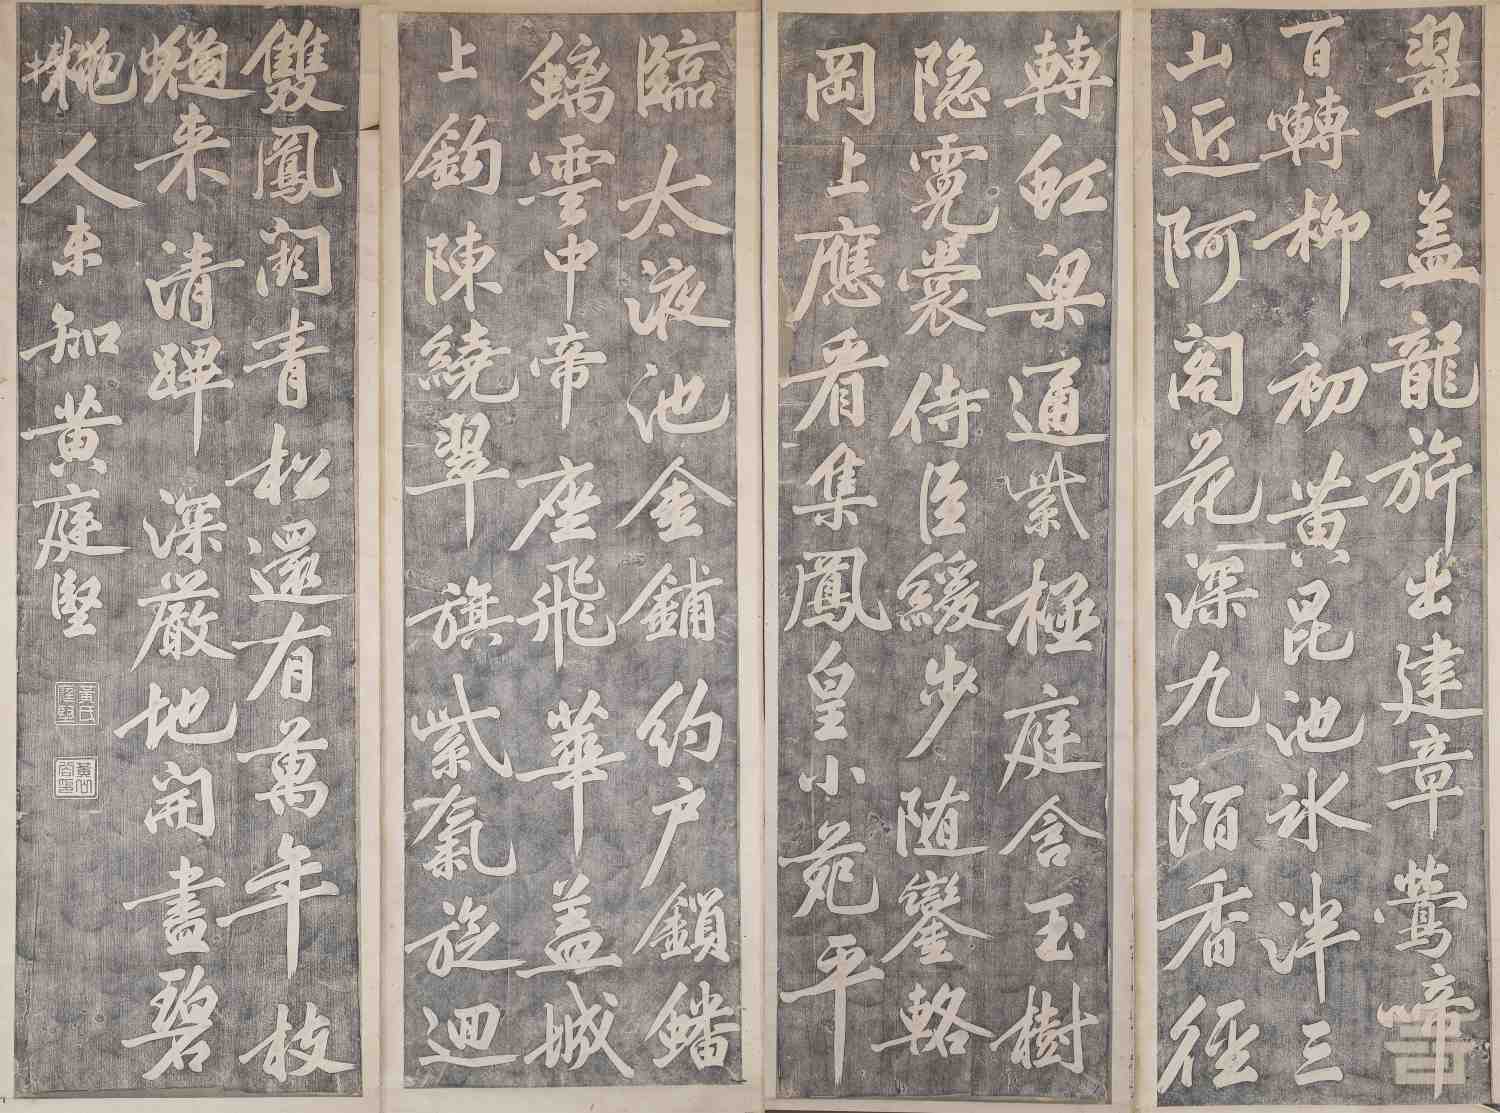 翠盖龍旂出建章鶯啼
百囀柳初黄昆池冰泮三
山近阿阁花深九陌香径
轉虹梁通紫極庭含玉樹
隐霓裳侍臣緩步随鑾輅
岡上應看集鳳皇小苑平
臨太液池金鋪約户鎖蟠
螭雲中帝座飛華盖城
上鈎陳繞翠旗紫氣旋迴
雙鳳闕青松還有萬年枝
來清蹕深嚴地開盡碧
桃人未知黄庭堅
黄氏庭堅